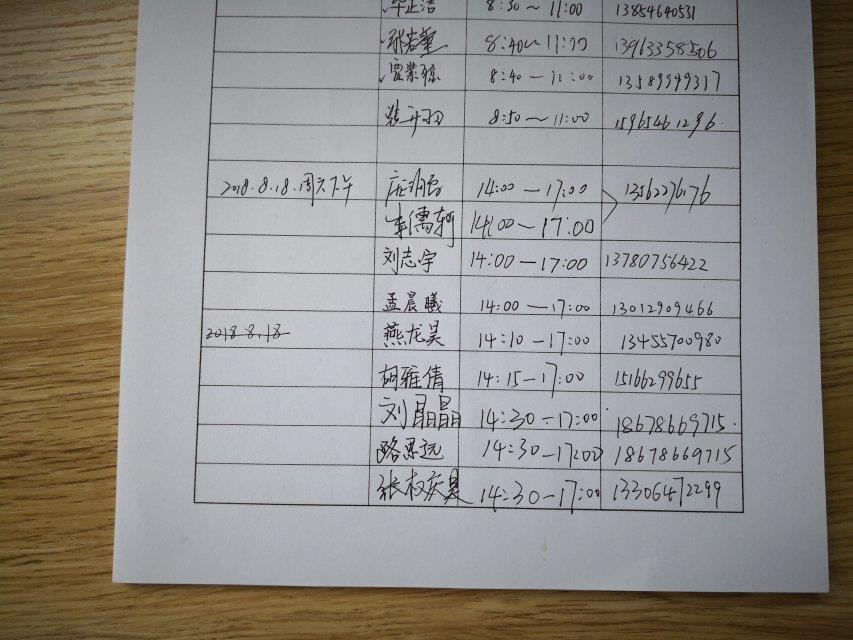 毕正洁 8:30~11:00 13854640531
张若萱 8:40~11:00 13963358506
8:40-11:00 13589999317
8:50-11:00 15965461296
2018.8.18.周六下午 14:00-17:00 13562276176
朱儒轲 14:00~17:00
刘志宇 14:00-17:00 13780756422
孟晨曦 14:00-17:00 13012909466
2018 8.18 燕龙昊 14:10-17:00 13455700980
胡雅倩 14:15-17:00 15166299655
刘晶晶 14:30-17:00 18678669715.
路思远 14:30-17:00 18678669715
张权庆昊 14:30-17:00 13306472299